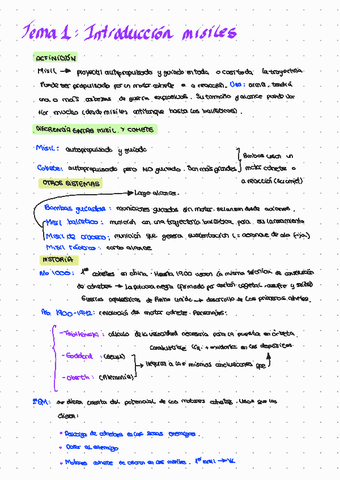 Tema 1: Introducción misiles
DEFINICIÓN
Misil → proyectil autopropulsado y guiado en toda o casi toda la trayectoria.
Puede ser propulsado por un motor cohete o a reacción. Uso: arma, tendrá
una o más cabezas de guerra explosivas. Su tamaño y alcance puede va-
riar mucho (desde misiles antitanque hasta los balísticos).
DIFERENCIA ENTRE MISIL Y COHETE
Misil: autopropulsado y guiado
Cohete: autopropulsado pero NO guiado. Son más grandes
Ambos usan un
motor cohete o
a reacción
OTROS SISTEMAS
Largo alcance.
Bombas guiadas: municiones guiadas sin motor. Se lanzan desde aviones.
Misil balístico: munición con una trayectoria balística para su lanzamiento
Misil de crucero: munición que genera sustentación
Misil táctico: corto alcance
HISTORIA
Año 1000: 1os cohetes en china. Hasta 1900 usaron la misma técnica de
de cohetes → La pólvora negra (formada por carbón vegetal, azufre y salitre)
Guerra de Reino Unido → desarrollo de los primeros cohetes.
Año 1900-1942: del motor cohete. Personajes:
- : cálculo de la velocidad necesaria para la puesta en órbita
combustible
- Goddard: (EEUU)
- Oberth: (Alemania)
→ llegaron a las mismas conclusiones que
2ªGM: se dieron cuenta del potencial de los motores cohetes. Usos que les
dieron:
• Descarga de cohetes en las zonas enemigas.
• al enemigo
• Motores cohete se usaron en los misiles. 1er misil → V2